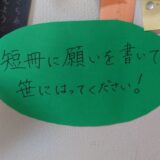 短冊に願いを書いて
笹にはってください!